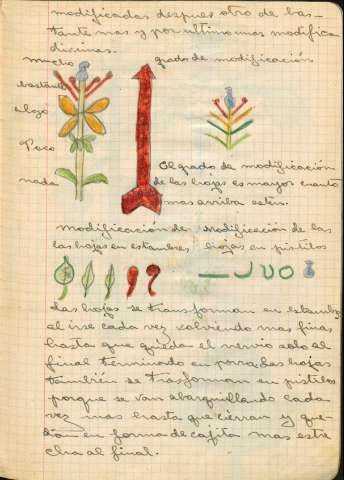 modificadas despues otro de bas-
tante mas y por ultimo mas modifica
disimas.
mucho grado de modificación
bastante
algo
Poco
nada
El grado de modificación
de las hojas es mayor cuanto
mas arriba esten.
modificación de modificación de las
las hojas en estambres hojas en pistilos
Las hojas se transforman en estambres
al irse cada vez volviendo mas finas
hasta que queda el nervio solo al
final terminado en porra. Las hojas
también se trasforman en pistilos
porque se van abarquillando cada
vez mas hasta que cierran y que-
dan en forma de cajita mas estre
cha al final.